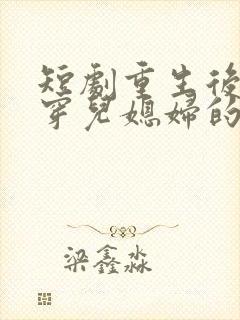 短劇重生後
穿兒媳婦的
梁鑫淼